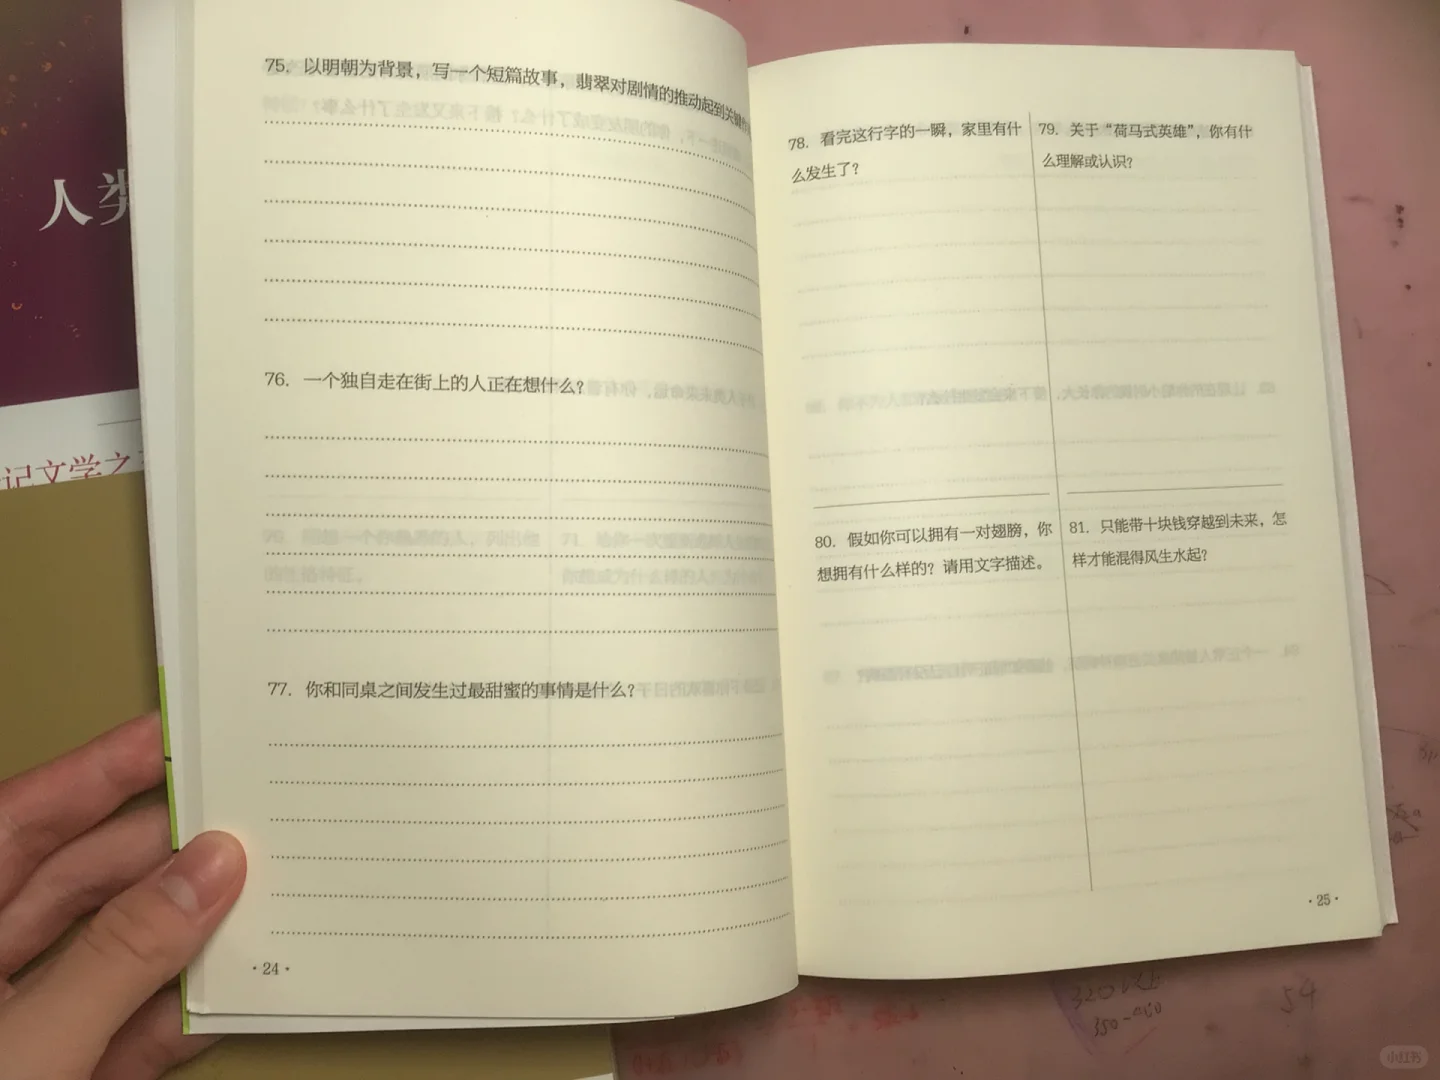 人类
记文学之
75. 以明朝为背景，写一个短篇故事，翡翠对剧情的推动起到关键作
76. 一个独自走在街上的人正在想什么？
77. 你和同桌之间发生过最甜蜜的事情是什么？
· 24 ·
78. 看完这行字的一瞬，家里有什
么发生了？
79. 关于“荷马式英雄”，你有什
么理解或认识？
80. 假如你可以拥有一对翅膀，你
想拥有什么样的？请用文字描述。
81. 只能带十块钱穿越到未来，怎
样才能混得风生水起？
· 25 ·
54
小红书